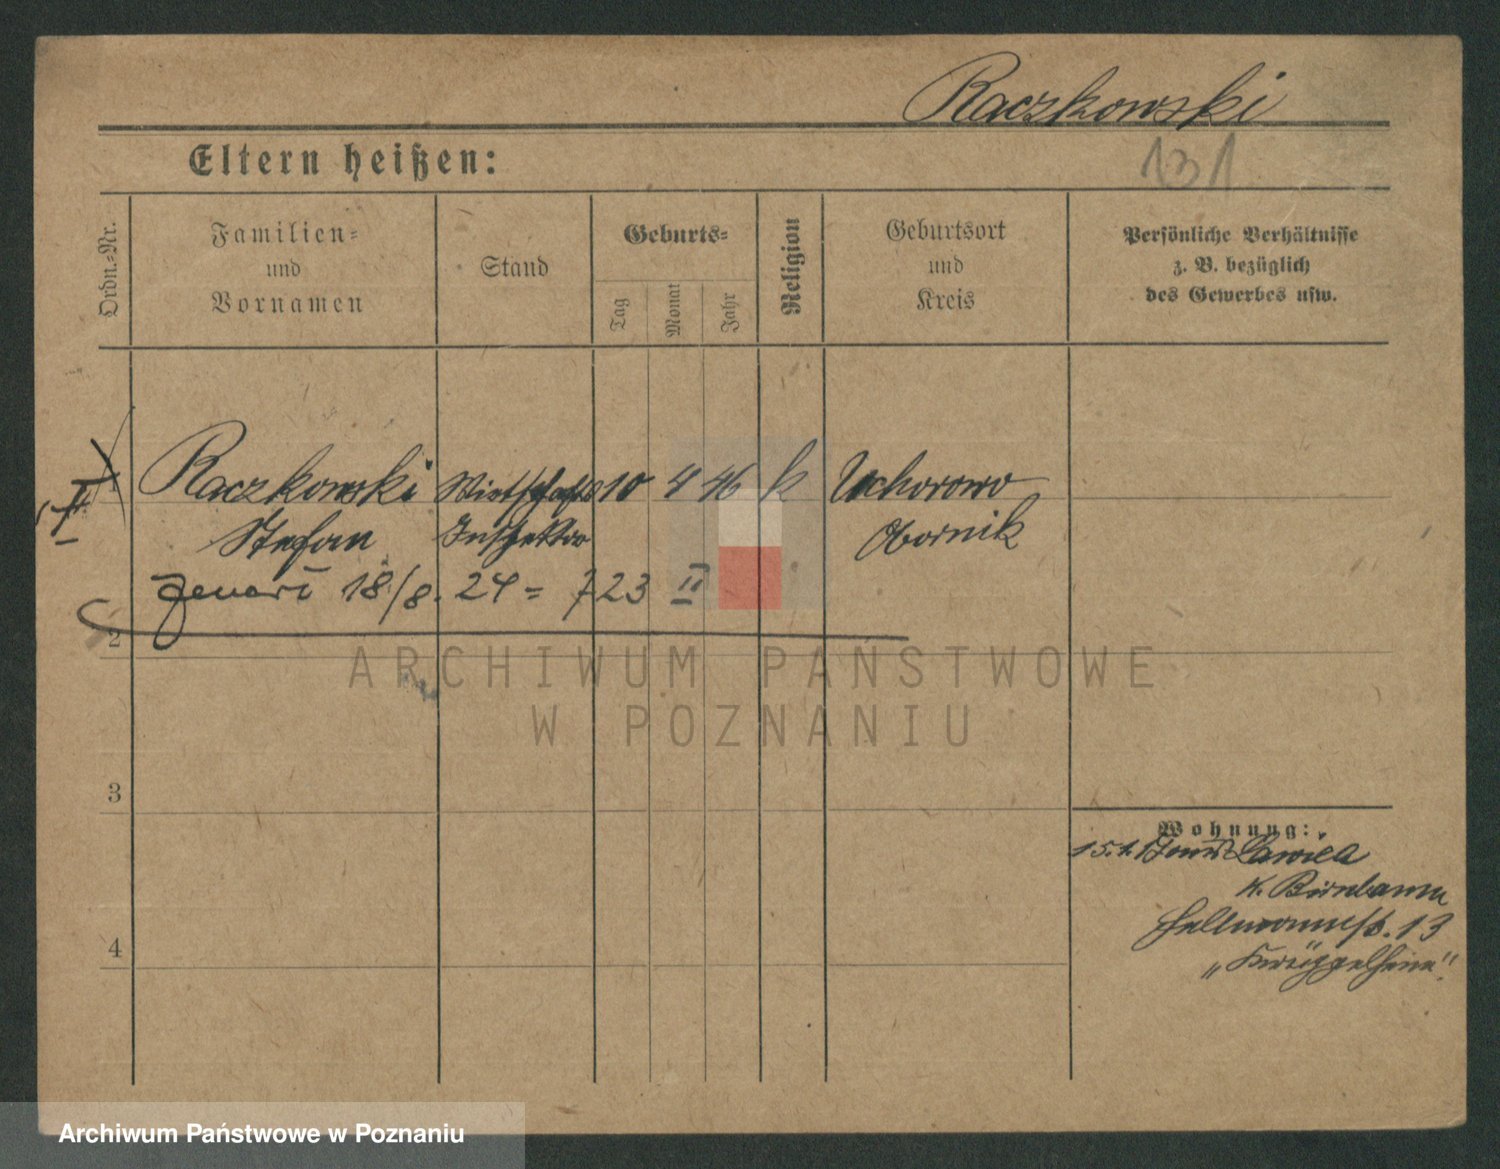 Raczkowski
131
Eltern heißen:
Ordn.-Nr.
Familien-
und
Vornamen
Stand
Geburts-
Tag
Monat
Jahr
Religion
Geburtsort
und
Kreis
Persönliche Verhältnisse
z. B. bezüglich
des Gewerbes usw.
1 Raczkowski Wirtschafts 10 4 46 k Uchorowo
Stefan Inspektor Obornik
zmarł 18/8. 24 = 723 II
2
ARCHIWUM PAŃSTWOWE
W POZNANIU
3
Wohnung:
15.1.
Lawica
K. Birnbaum
13
4
Archiwum Państwowe w Poznaniu